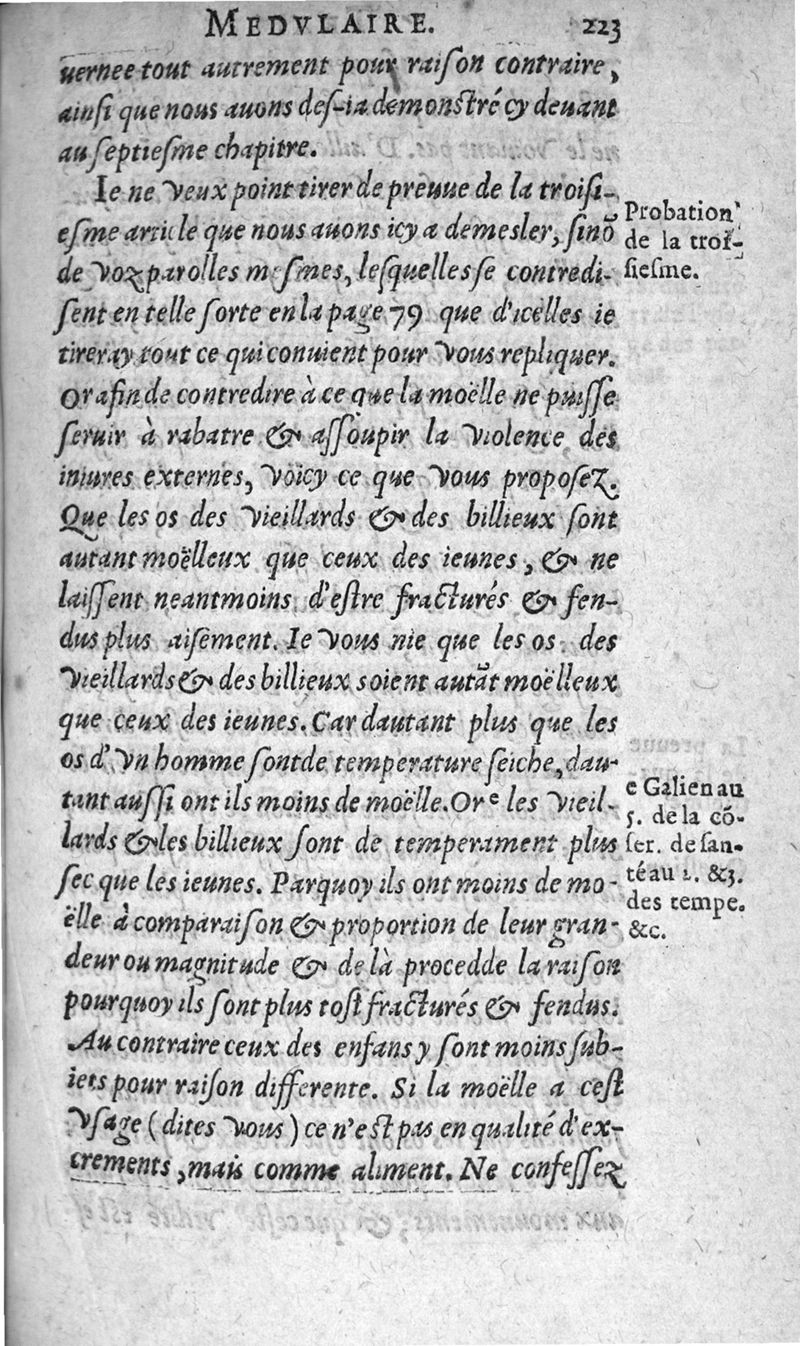 MEDVLAIRE. 223
uernee tout autrement pour raiſon contraire,
ainſi que nous auons deſ-ia demonſtré cy deuant
au ſeptieſme chapitre.
Ie ne veux point tirer de preuue de la troiſi-
eſme article que nous auons icy a demesler, ſinõ
de voz parolles meſmes, leſquelles ſe contredi-
ſent en telle ſorte en la page 79 que d'icelles ie
tireray tout ce qui conuient pour vous repliquer.
Or afin de contredire à ce que la moëlle ne puiſſe
ſeruir à rabatre & aſſoupir la violence des
iniures externes, voicy ce que vous propoſez.
Que les os des vieillards & des billieux ſont
autant moëlleux que ceux des ieunes, & ne
laiſſent neantmoins d'eſtre fracturés & fen-
dus plus aiſement. Ie vous nie que les os des
vieillards & des billieux soient autãt moëlleux
que ceux des ieunes. Car dautant plus que les
os d'vn homme ſont de temperature ſeiche, dau-
tant auſſi ont ils moins de moëlle. Or e les vieil-
lards & les billieux ſont de temperament plus
ſec que les ieunes. Parquoy ils ont moins de mo-
ëlle à comparaiſon & proportion de leur gran-
deur ou magnitude & de là procedde la raiſon
pourquoy ils ſont plus toſt fracturés & fendus.
Au contraire ceux des enfans y ſont moins ſub-
iets pour raiſon differente. Si la moëlle a ceſt
vſage (dites vous) ce n'eſt pas en qualité d'ex-
crements, mais comme aliment. Ne confeſſez
Probation
de la troi-
ſieſme.
e Galien au
5. de la cõ-
ſer. de ſan-
té au 2. & 3.
des tempe.
&c.